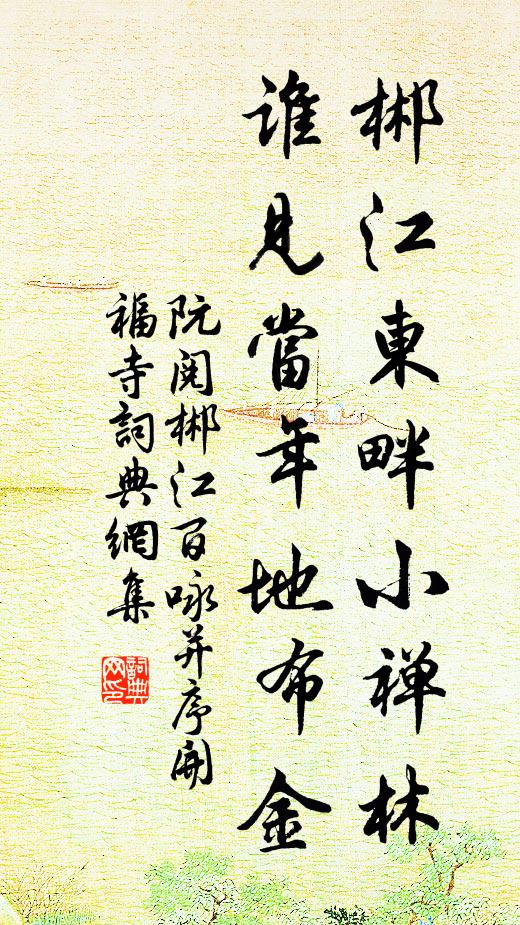 郴江東畔小禅林
誰見當年地布金
阮閱郴江百咏并序開
福寺詞典網集
詞典网印